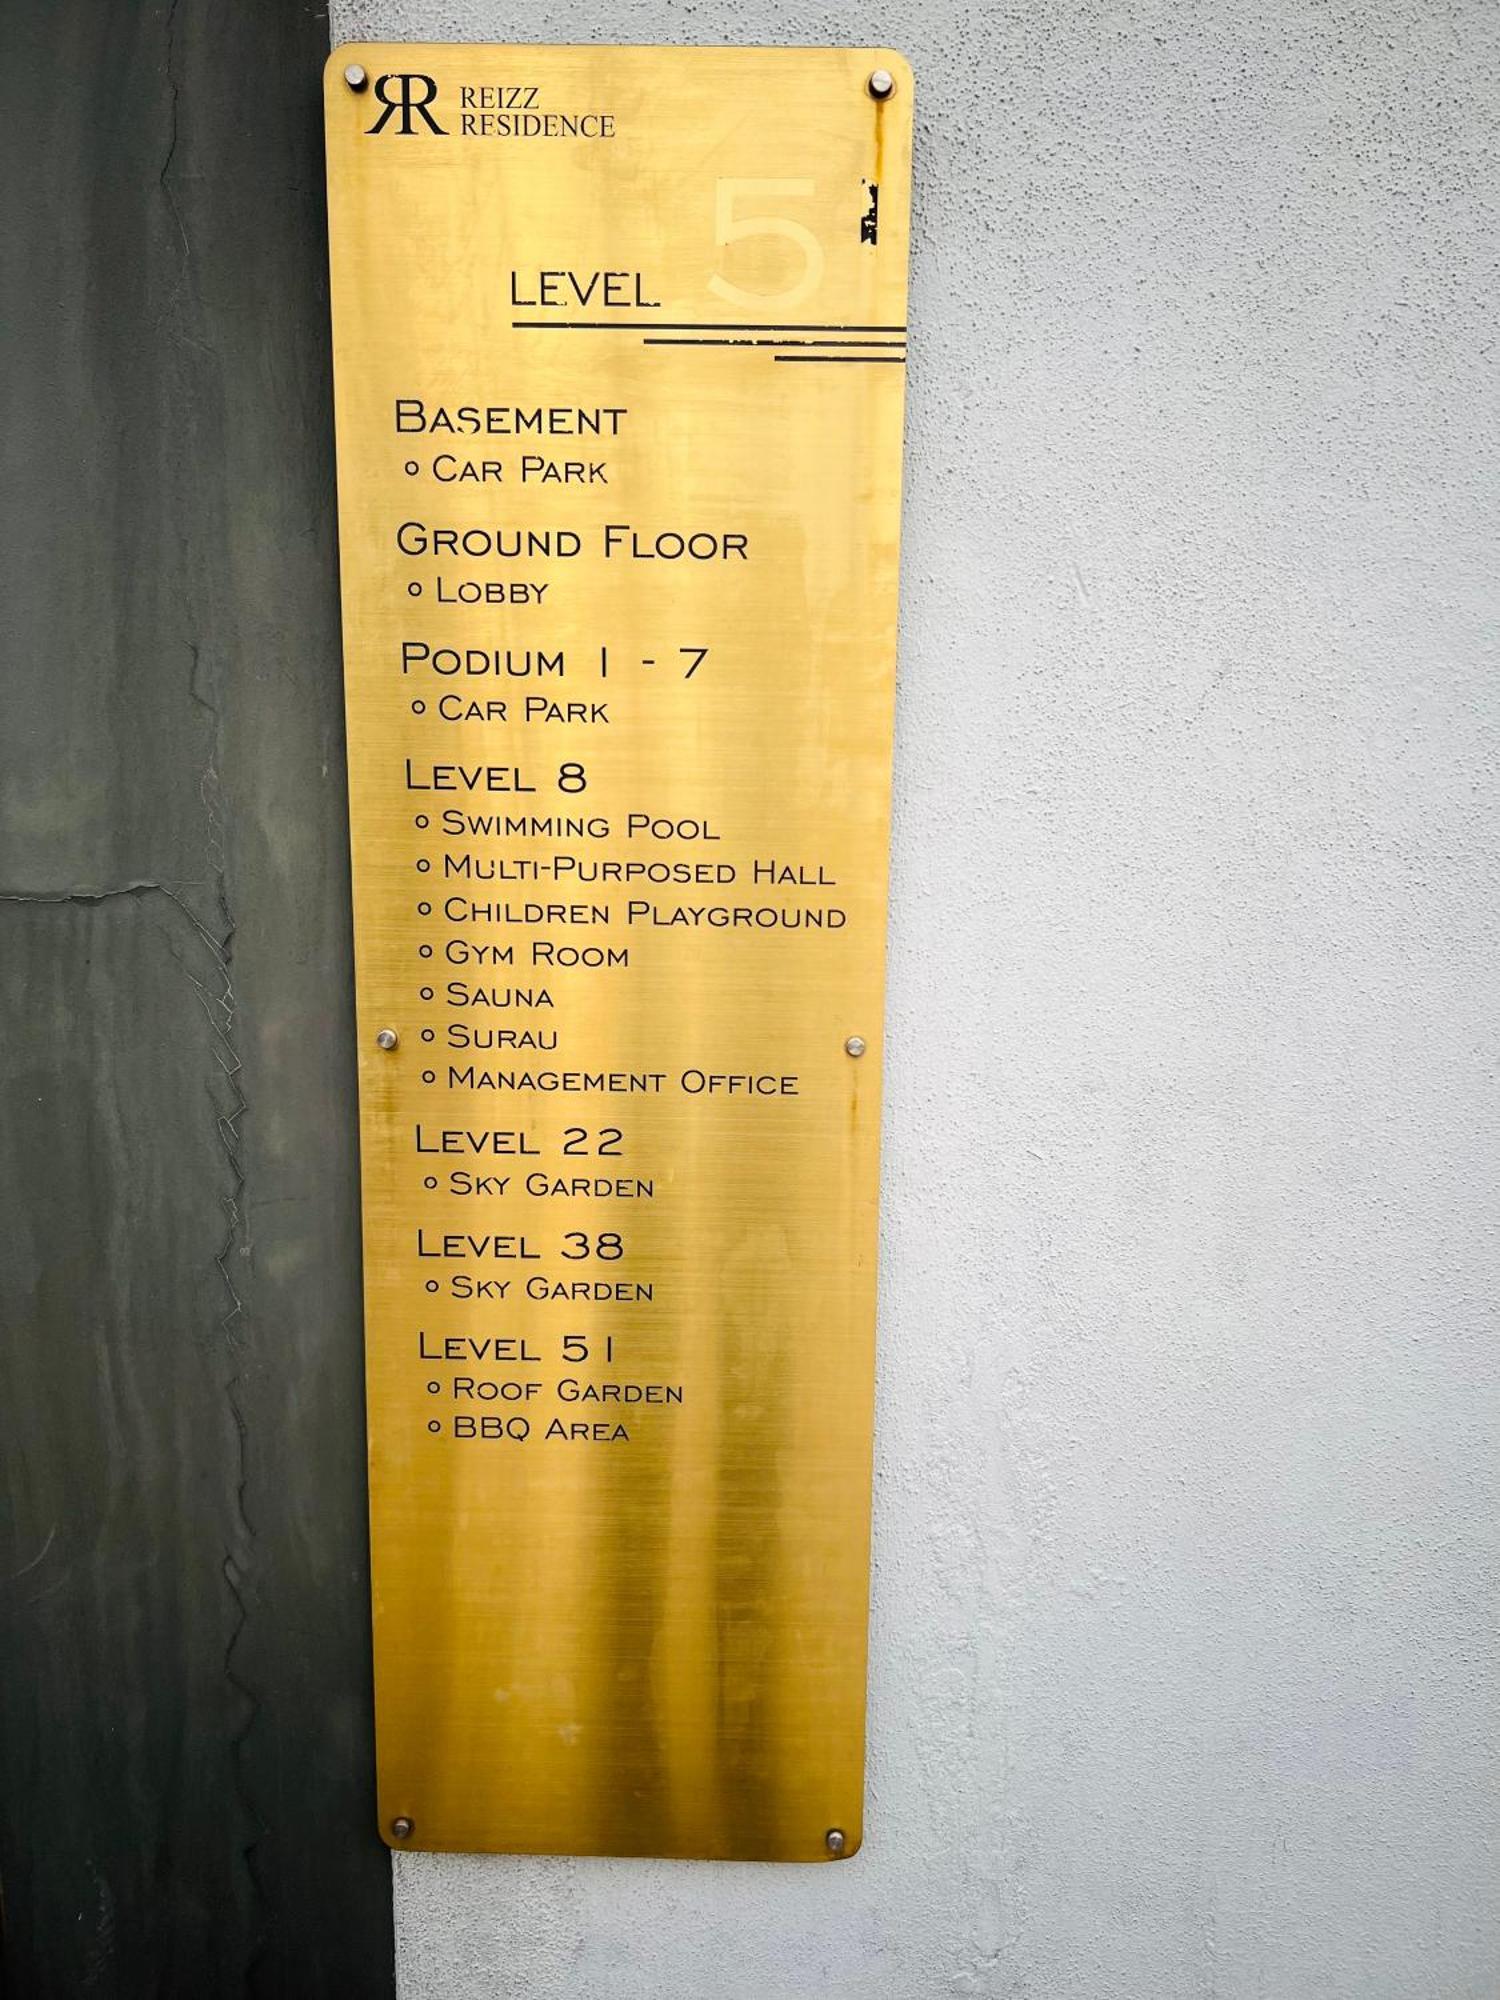 RR REIZZ
RESIDENCE
5
LEVEL
BASEMENT
CAR PARK
GROUND FLOOR
LOBBY
PODIUM 1 - 7
CAR PARK
LEVEL 8
SWIMMING POOL
MULTI-PURPOSED HALL
CHILDREN PLAYGROUND
GYM ROOM
SAUNA
SURAU
MANAGEMENT OFFICE
LEVEL 22
SKY GARDEN
LEVEL 38
SKY GARDEN
LEVEL 51
ROOF GARDEN
BBQ AREA